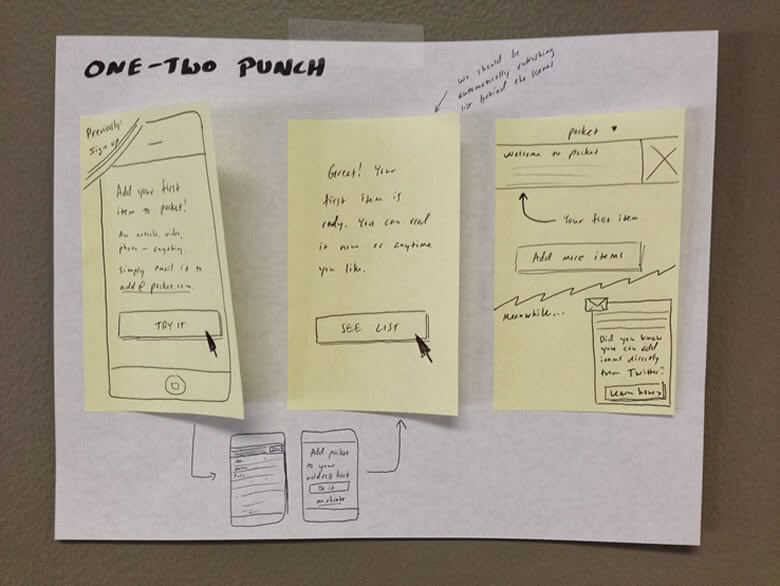 ONE-TWO PUNCH
we should be
automatically refreshing
list behind the scenes
Previously:
Sign up
Add your first
item to pocket!
An article, video,
photo — anything.
Simply email it to
add@pocket.com.
TRY IT
Great! Your
first item is
ready. You can read
it now or anytime
you like.
SEE LIST
pocket
Welcome to pocket
Your first item
Add more items
Meanwhile...
Did you know
you can add
items directly
from Twitter?
Learn how>
Add pocket
to your
address book
Do it
no thanks